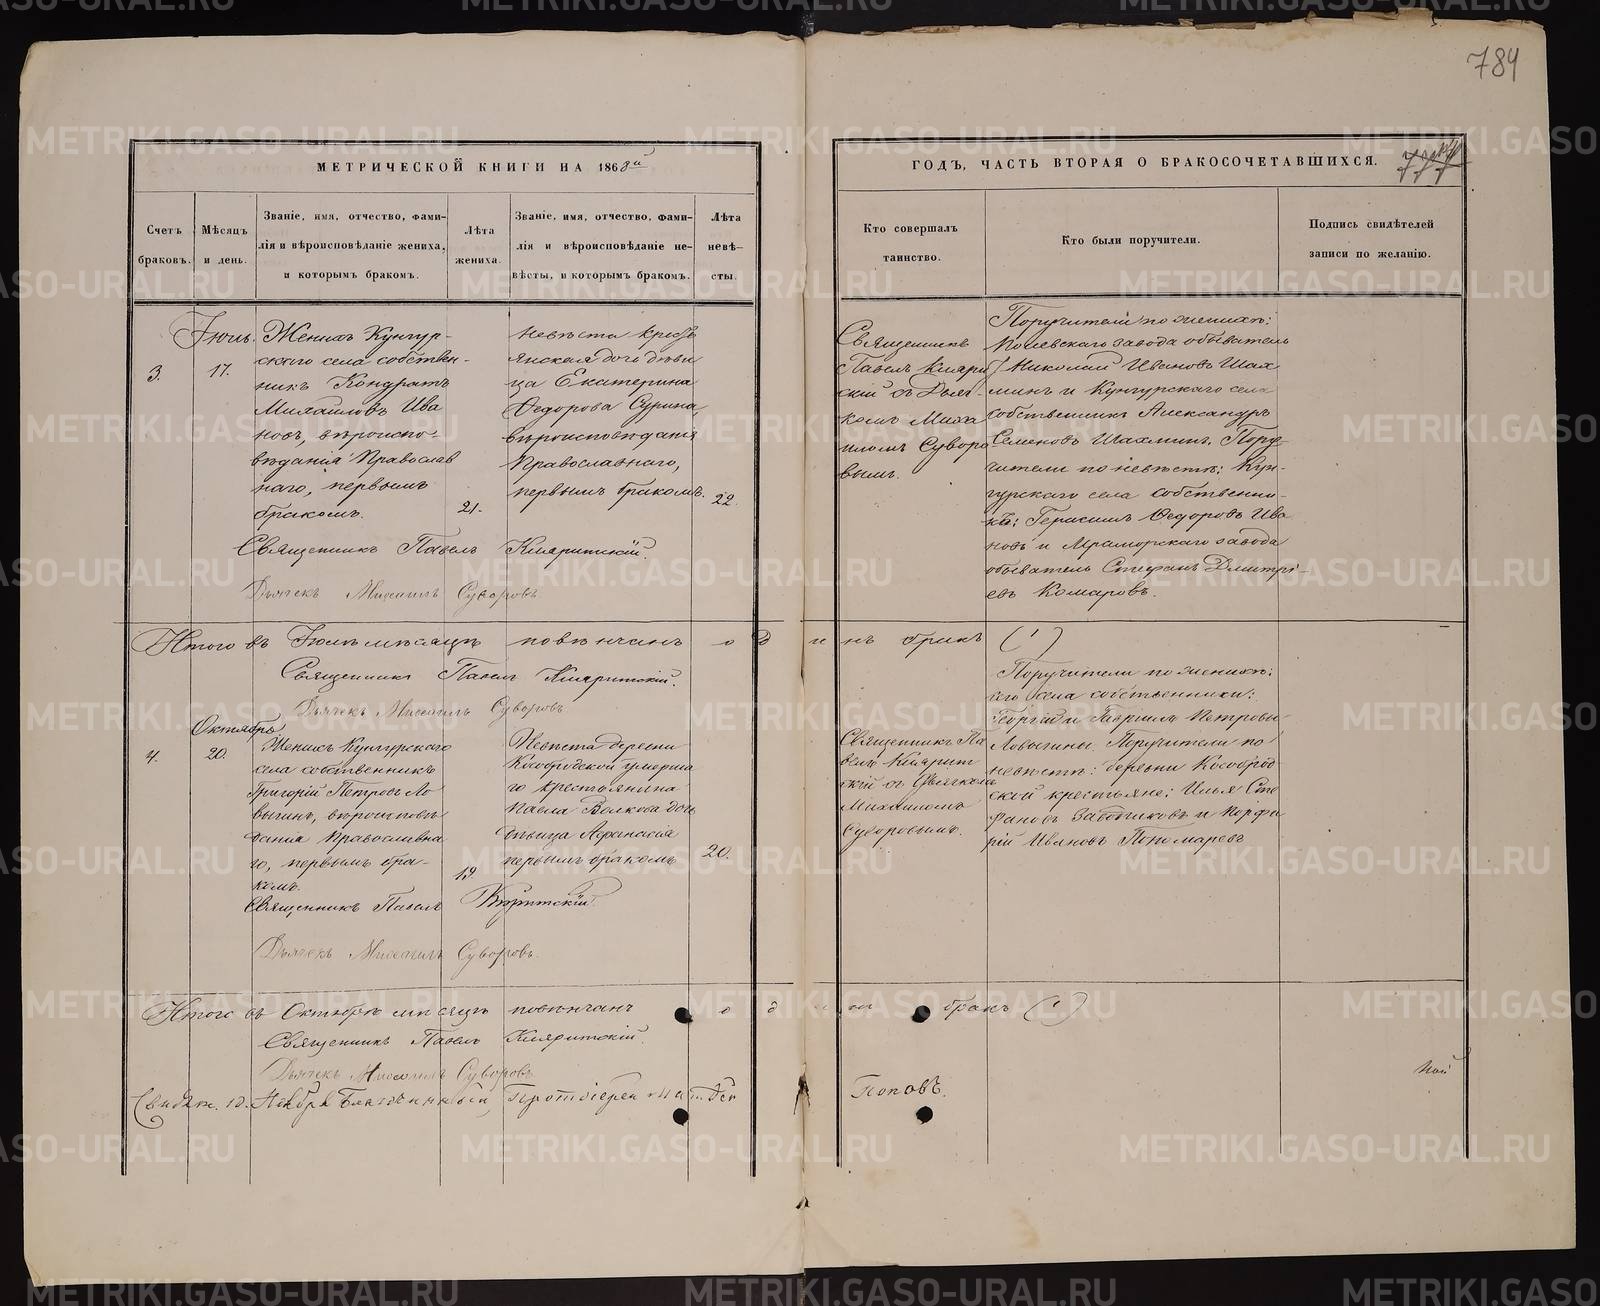 784
МЕТРИЧЕСКОЙ КНИГИ НА 1868й
ГОДЪ, ЧАСТЬ ВТОРАЯ О БРАКОСОЧЕТАВШИХСЯ.
Счетъ
браковъ.
Мѣсяцъ
и день.
Званіе, имя, отчество, фами-
лія и вѣроисповѣданіе жениха,
и которымъ бракомъ.
Лѣта
жениха.
Званіе, имя, отчество, фами-
лія и вѣроисповѣданіе не-
вѣсты, и которымъ бракомъ.
Лѣта
невѣ-
сты.
Кто совершалъ
таинство.
Кто были поручители.
Подпись свидѣтелей
записи по желанію.
3.
Іюнь.
17.
Женихъ Кунгур-
скаго села собствен-
никъ Кондратъ
Михаиловъ Ива
новъ, вѣроиспо-
вѣданія Православ
наго, первымъ
бракомъ.
21.
Невѣста кресть
янская дочь дѣви
ца Екатерина
Ѳедорова Сурина,
вѣроисповѣданія
Православнаго,
первымъ бракомъ.
22.
Священникъ
Павелъ
скій съ Дьяч-
комъ Миха
иломъ Суворо
вымъ.
Поручители по женихѣ:
Полевскаго завода обыватель
Николай Ивановъ Шах
минъ и Кунгурскаго села
собственникъ Александръ
Семеновъ Шахминъ. Пору-
чители по невѣстѣ: Кун-
гурскаго села собственни-
къ: Герасимъ Ѳедоровъ Ива
новъ и Мраморскаго завода
обыватель Стефанъ Дмитрі-
евъ Комаровъ.
Священникъ Павелъ
Дьячекъ Михаилъ Суворовъ
Итого въ мѣсяцѣ повѣнчанъ одинъ бракъ (1)
Священникъ Павелъ
Дьячекъ Михаилъ Суворовъ
4.
Октябрь
20.
Женихъ Кунгурскаго
села собственникъ
Григорій Петровъ Ло
выгинъ, вѣроисповѣ
данія Православна
го, первымъ бра-
комъ.
19.
Невѣста деревни
Кособродской умерша
го крестьянина
Павла Волкова дочь
дѣвица Афанасія
первымъ бракомъ
20.
Священникъ Па
велъ
скій съ Дьячкомъ
Михаиломъ
Суворовымъ.
Поручители по женихѣ:
его села собственники:
Георгій и Гавріилъ Петровы
Ловыгины. Поручители по
невѣстѣ: деревни Кособрод
ской крестьяне: Илья Сте
фановъ и Порфи
рій Ивановъ Пономаревъ
Священникъ Павелъ
Дьячекъ Михаилъ Суворовъ.
Итого въ Октябрѣ мѣсяцѣ повѣнчанъ одинъ бракъ (1)
Священникъ Павелъ
Дьячекъ Михаилъ Суворовъ
Ноября Благочинный, Протоіерей Поповъ.
METRIKI.GASO-URAL.RU